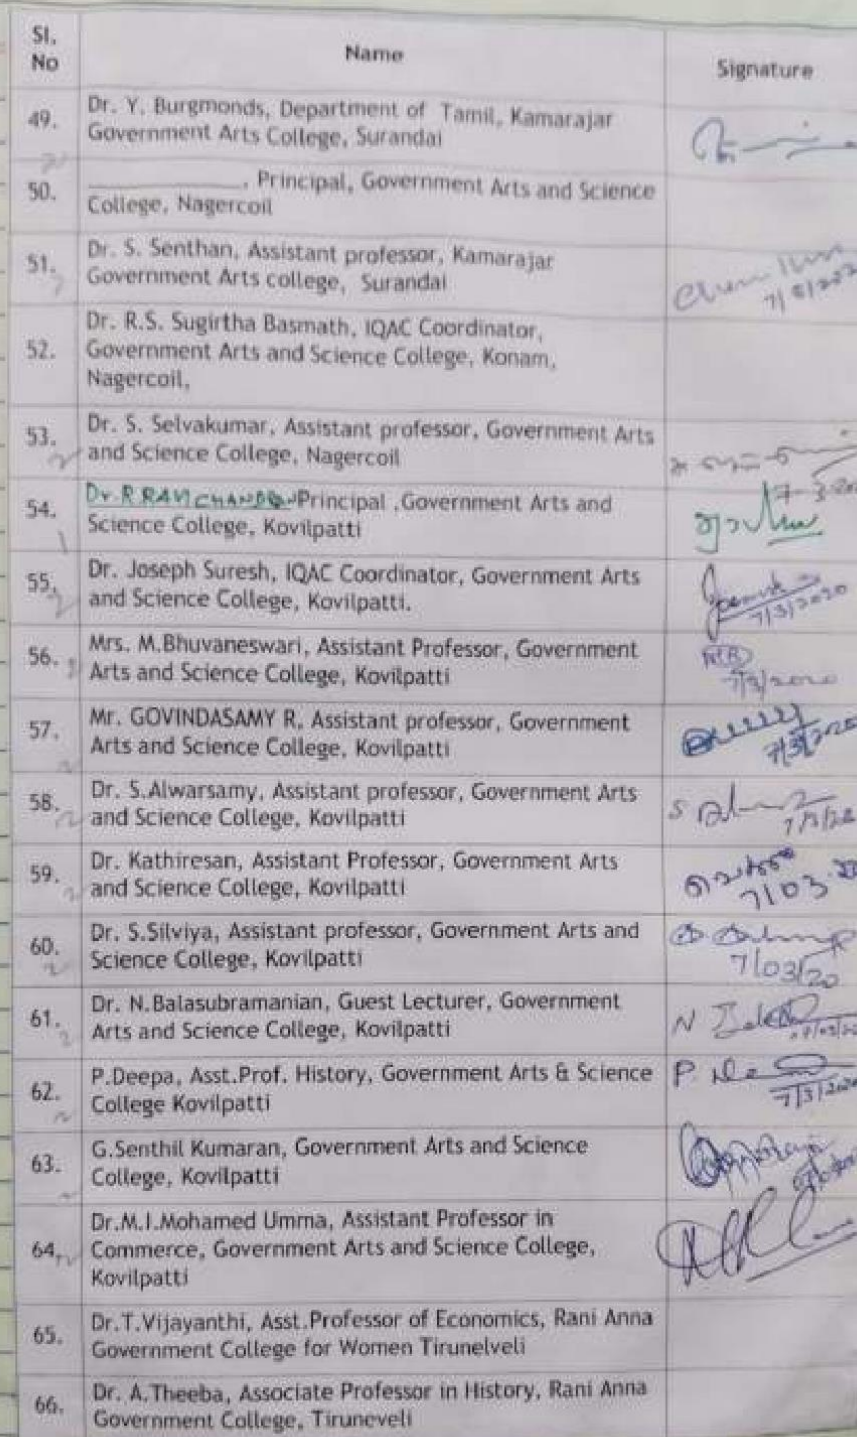 Sl. No
Name
Signature
49.
Dr. Y. Burgmonds, Department of Tamil, Kamarajar
Government Arts College, Surandai
50.
____________, Principal, Government Arts and Science
College, Nagercoil
51.
Dr. S. Senthan, Assistant professor, Kamarajar
Government Arts college, Surandai
52.
Dr. R.S. Sugirtha Basmath, IQAC Coordinator,
Government Arts and Science College, Konam,
Nagercoil,
53.
Dr. S. Selvakumar, Assistant professor, Government Arts
and Science College, Nagercoil
54.
Dr. R RAVICHANDRAN Principal ,Government Arts and
Science College, Kovilpatti
55.
Dr. Joseph Suresh, IQAC Coordinator, Government Arts
and Science College, Kovilpatti.
7/3/2020
56.
Mrs. M.Bhuvaneswari, Assistant Professor, Government
Arts and Science College, Kovilpatti
7/3/2020
57.
Mr. GOVINDASAMY R, Assistant professor, Government
Arts and Science College, Kovilpatti
7/3/2020
58.
Dr. S.Alwarsamy, Assistant professor, Government Arts
and Science College, Kovilpatti
59.
Dr. Kathiresan, Assistant Professor, Government Arts
and Science College, Kovilpatti
7/03.20
60.
Dr. S.Silviya, Assistant professor, Government Arts and
Science College, Kovilpatti
7/03/20
61.
Dr. N.Balasubramanian, Guest Lecturer, Government
Arts and Science College, Kovilpatti
62.
P.Deepa, Asst.Prof. History, Government Arts & Science
College Kovilpatti
7/3/2020
63.
G.Senthil Kumaran, Government Arts and Science
College, Kovilpatti
64.
Dr.M.I.Mohamed Umma, Assistant Professor in
Commerce, Government Arts and Science College,
Kovilpatti
65.
Dr.T.Vijayanthi, Asst.Professor of Economics, Rani Anna
Government College for Women Tirunelveli
66.
Dr. A.Theeba, Associate Professor in History, Rani Anna
Government College, Tiruneveli